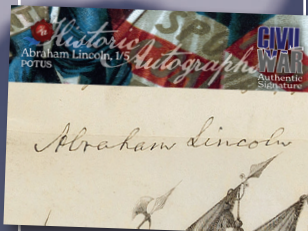 Historic
Autographs
Abraham Lincoln, 1/5
POTUS
CIVIL
WAR
Authentic
Signature
Abraham Lincoln